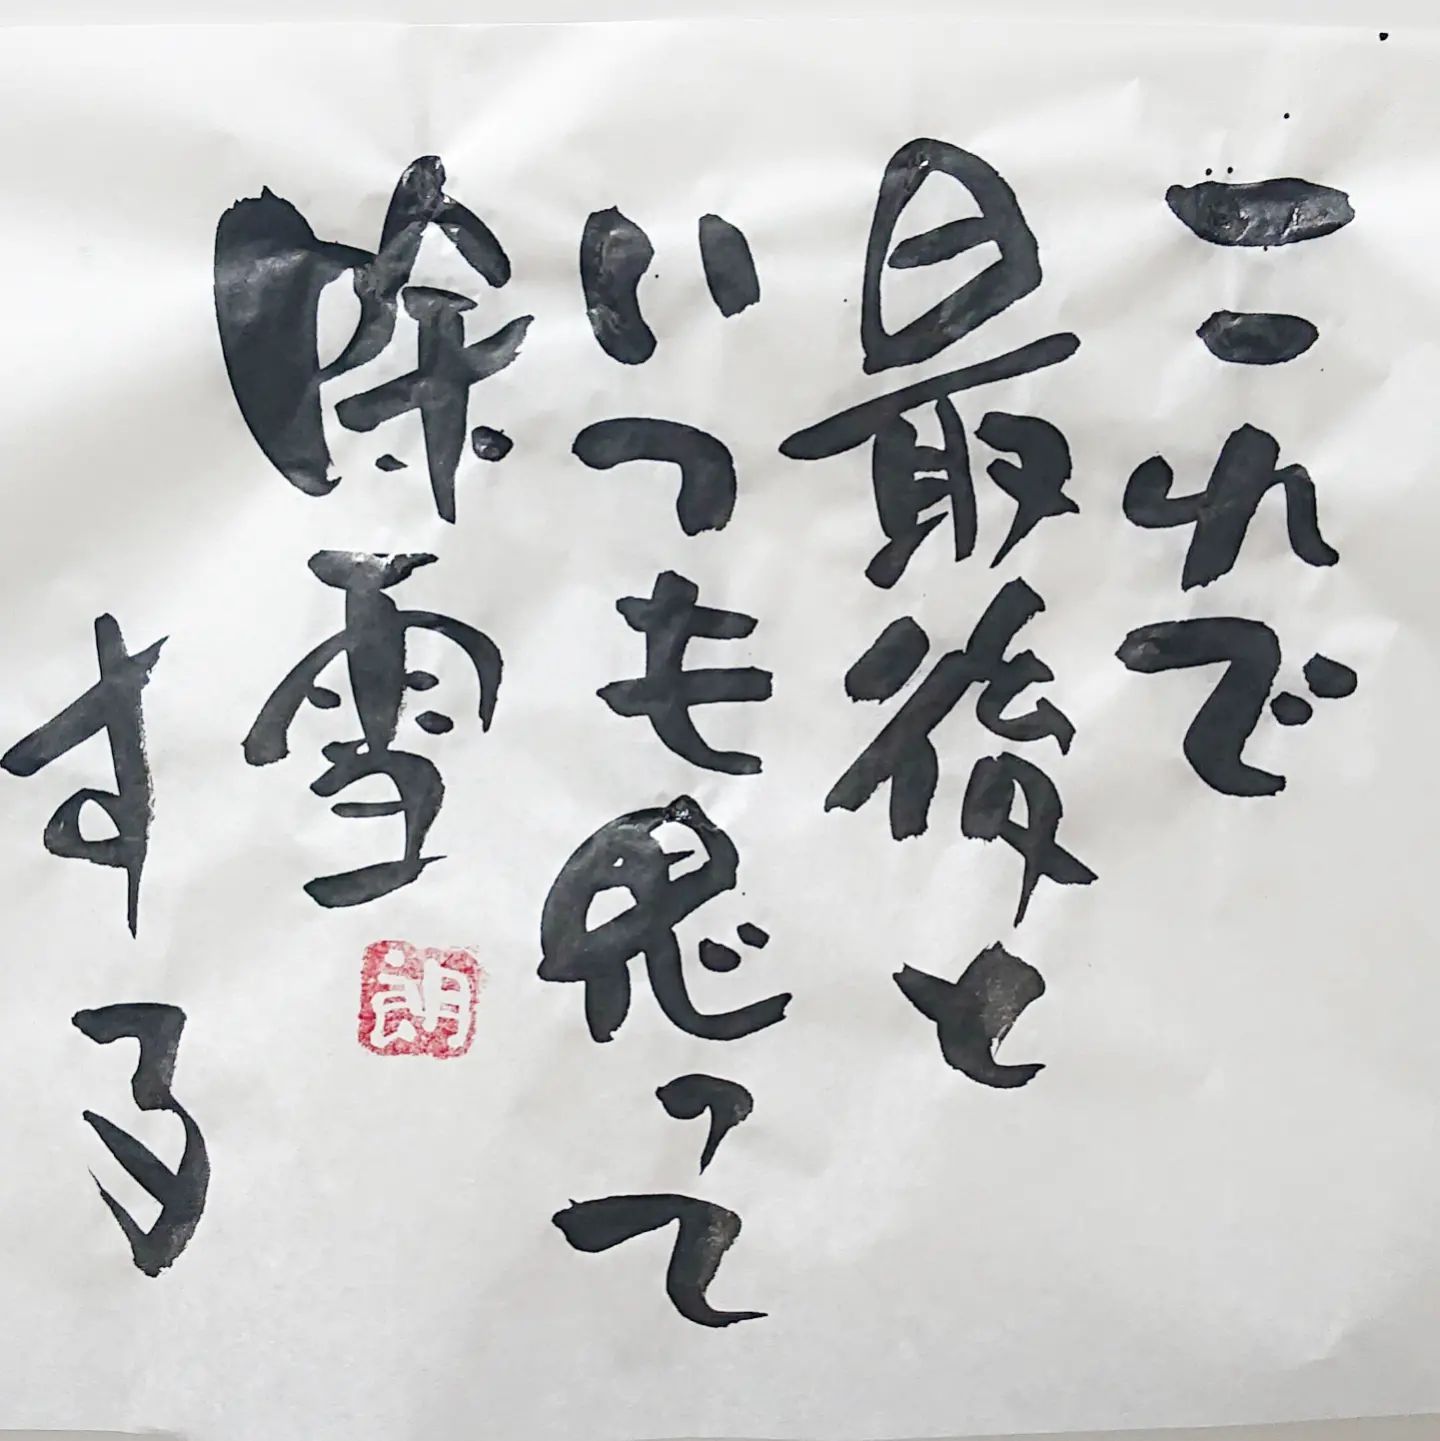 これで
最後と
いつも思って
除雪
する
朗